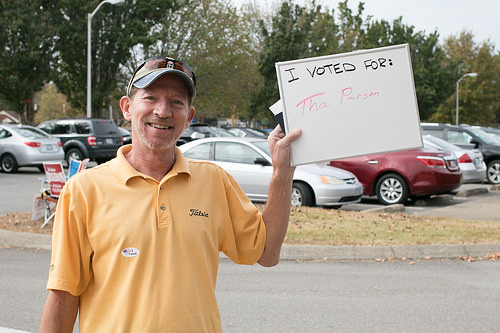 I VOTED FOR:
The Person
Titleist